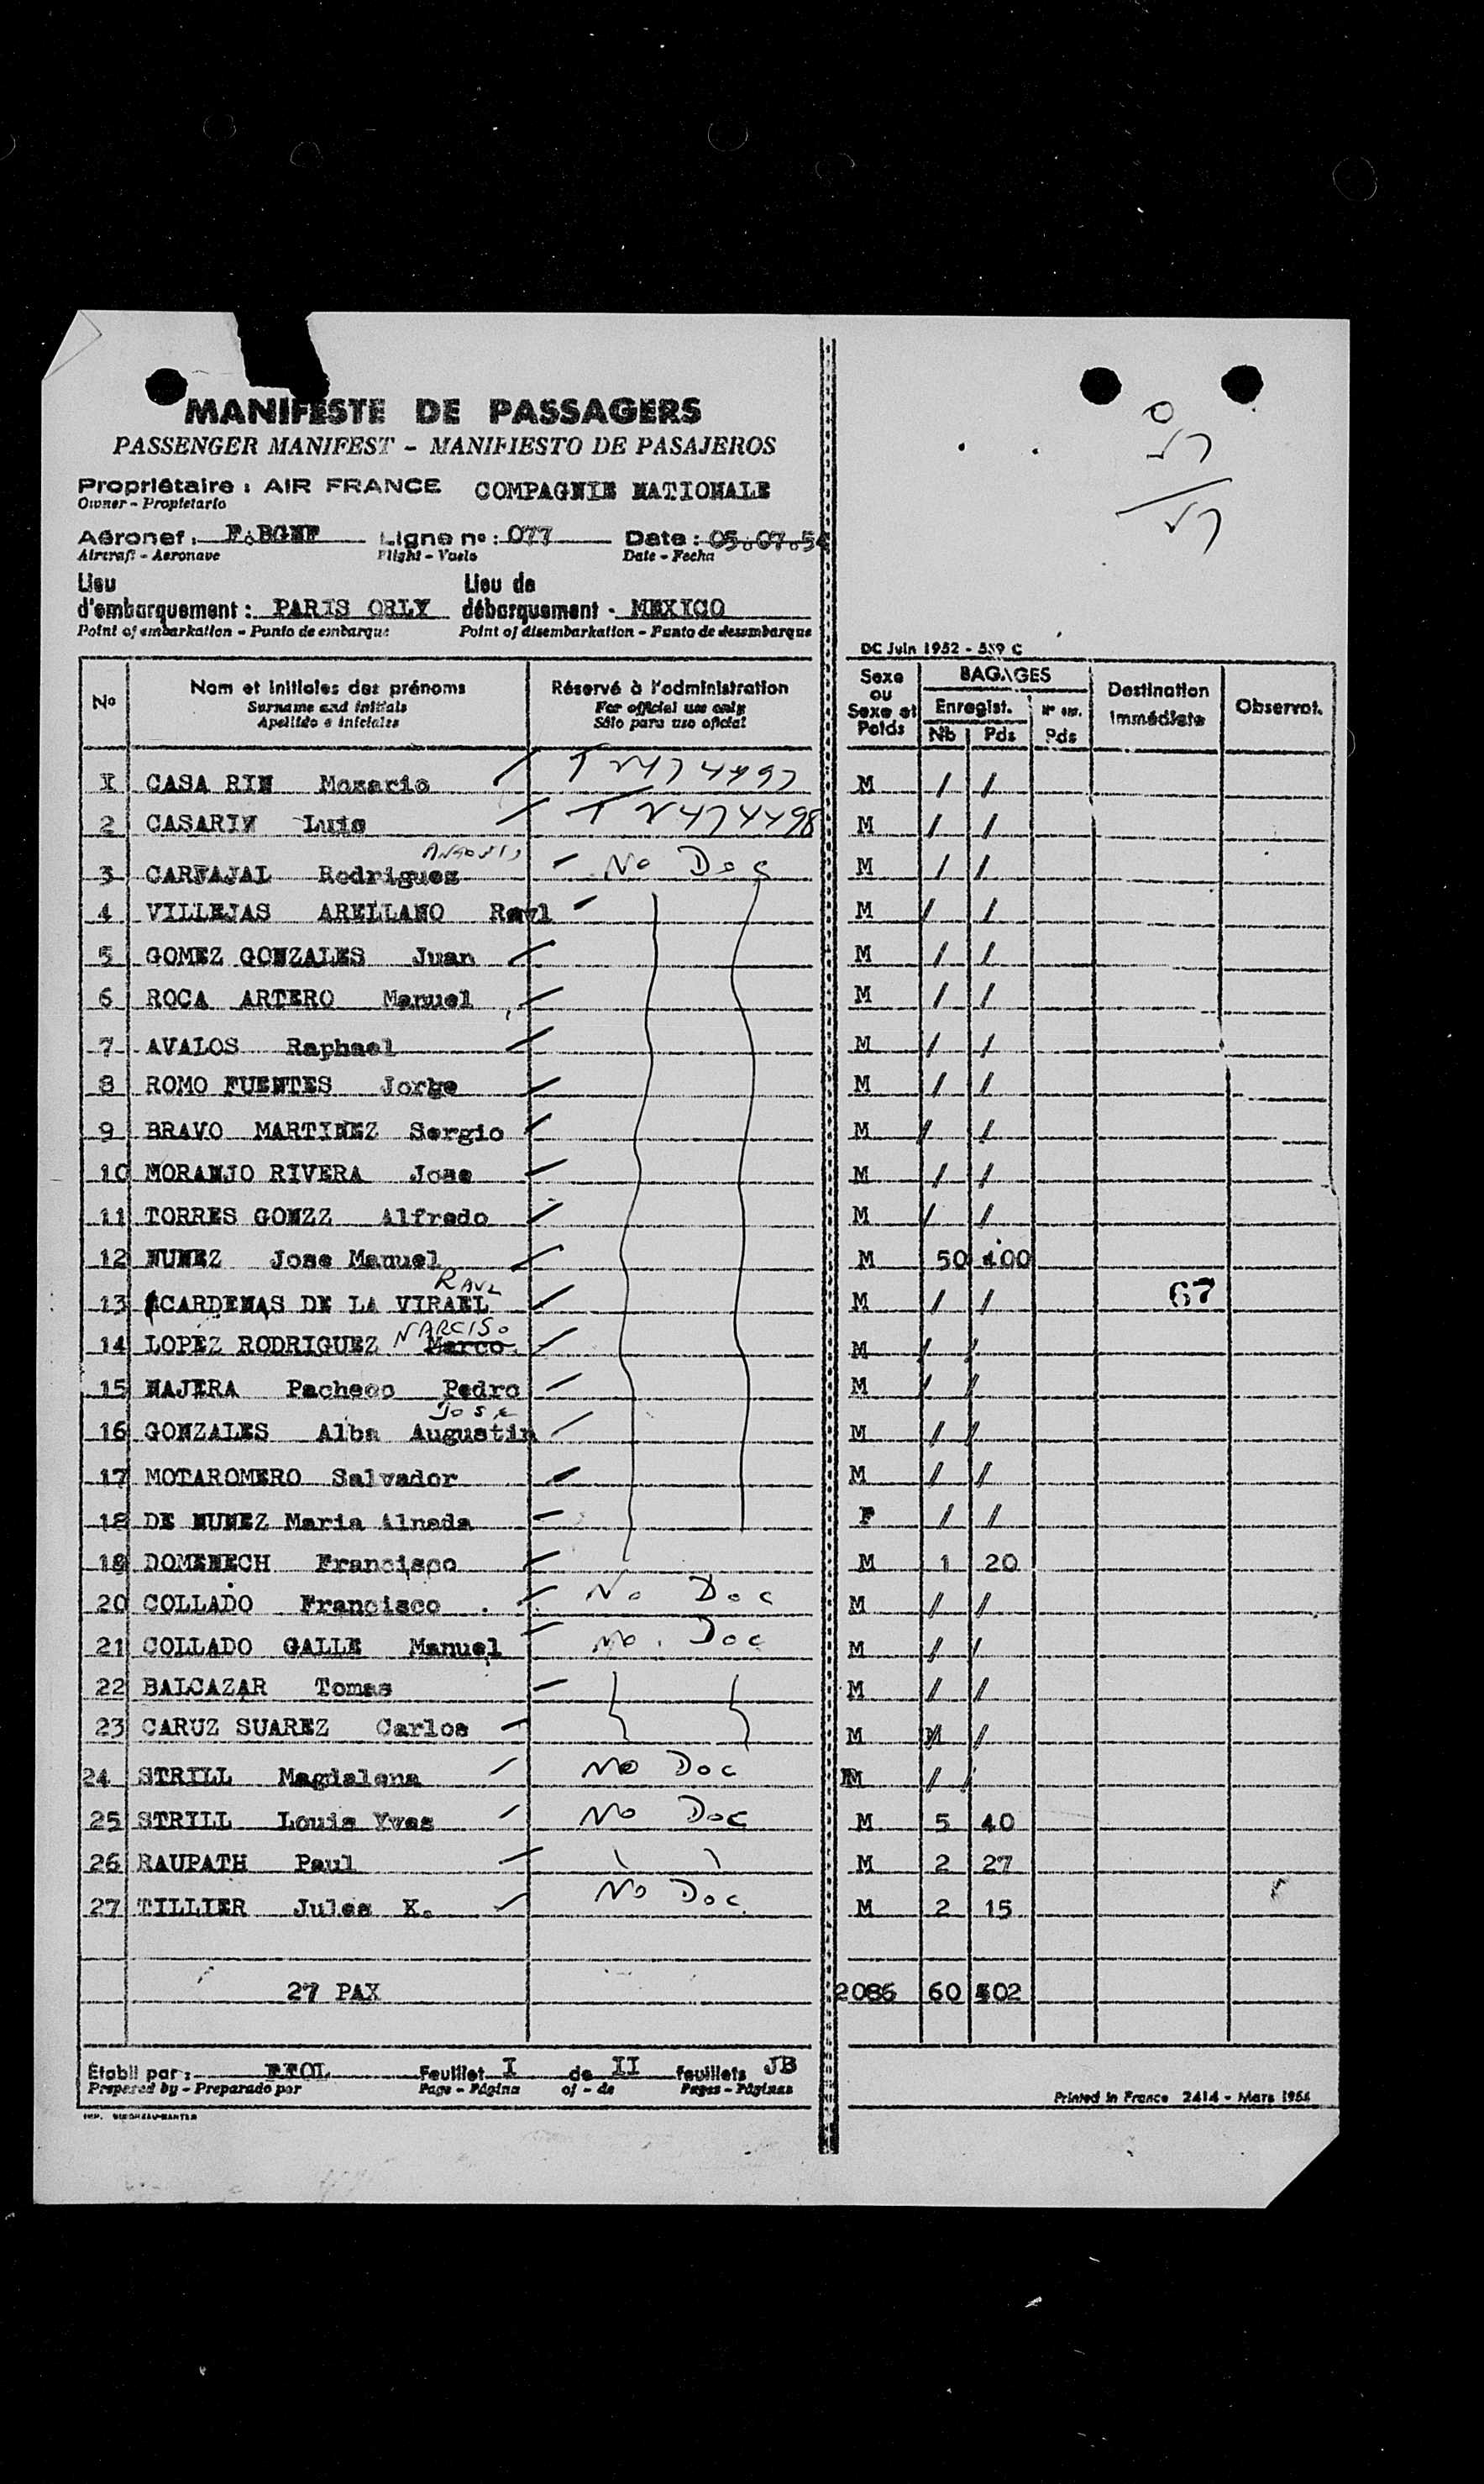 MANIFESTE DE PASSAGERS
PASSENGER MANIFEST - MANIFIESTO DE PASAJEROS
Propriétaire : AIR FRANCE COMPAGNIE NATIONALE
Owner - Propietario
Aéronef : F.BGNF Ligne nº : 077 Date : 05.07.54
Aircraft - Aeronave Flight - Vuelo Date - Fecha
Lieu d'embarquement : PARIS ORLY Lieu de débarquement - MEXICO
Point of embarkation - Punto de embarque Point of disembarkation - Punto de desembarque
DC Juin 1952 - 559 C
Nº Nom et initiales des prénoms Réservé à l'administration Sexe ou Sexe et Poids BAGAGES Destination immédiate Observat.
Surname and initials For official use only Enregist. Nº en.
Apellido e iniciales Sólo para uso oficial Nb Pds Pds
I CASA RIN Moxario T 2474497 M / /
2 CASARIN Luis T 2474498 M / /
3 CARVAJAL Rodriguez No Doc M / /
4 VILLEJAS ARELLANO Raul M / /
5 GOMEZ GONZALES Juan M / /
6 ROCA ARTERO Manuel M / /
7 AVALOS Raphael M / /
8 ROMO FUENTES Jorge M / /
9 BRAVO MARTINEZ Sergio M / /
10 MORANJO RIVERA Jose M / /
11 TORRES GONZZ Alfredo M / /
12 NUNEZ Jose Manuel M 50 400
RAUL
13 CARDENAS DE LA VIRAEL M / / 67
NARCISO
14 LOPEZ RODRIGUEZ Marco M / /
15 NAJERA Pacheco Pedro M / /
Jose
16 GONZALES Alba Augustin M / /
17 MOTAROMERO Salvador M / /
18 DE NUNEZ Maria Alneda F / /
19 DOMENECH Francisco M 1 20
20 COLLADO Francisco No Doc M / /
21 COLLADO GALLE Manuel No. Doc M / /
22 BALCAZAR Tomas M / /
23 CARUZ SUAREZ Carlos M / /
24 STRILL Magdalena No Doc M / /
25 STRILL Louis Yves No Doc M 5 40
26 RAUPATH Paul M 2 27
27 TILLIER Jules K. No Doc M 2 15
27 PAX 2086 60 502
Établi par : Feuillet I de II feuillets JB
Prepared by - Preparado por Page - Página of - de Pages - Páginas
Printed in France 2414 - Mars 1954